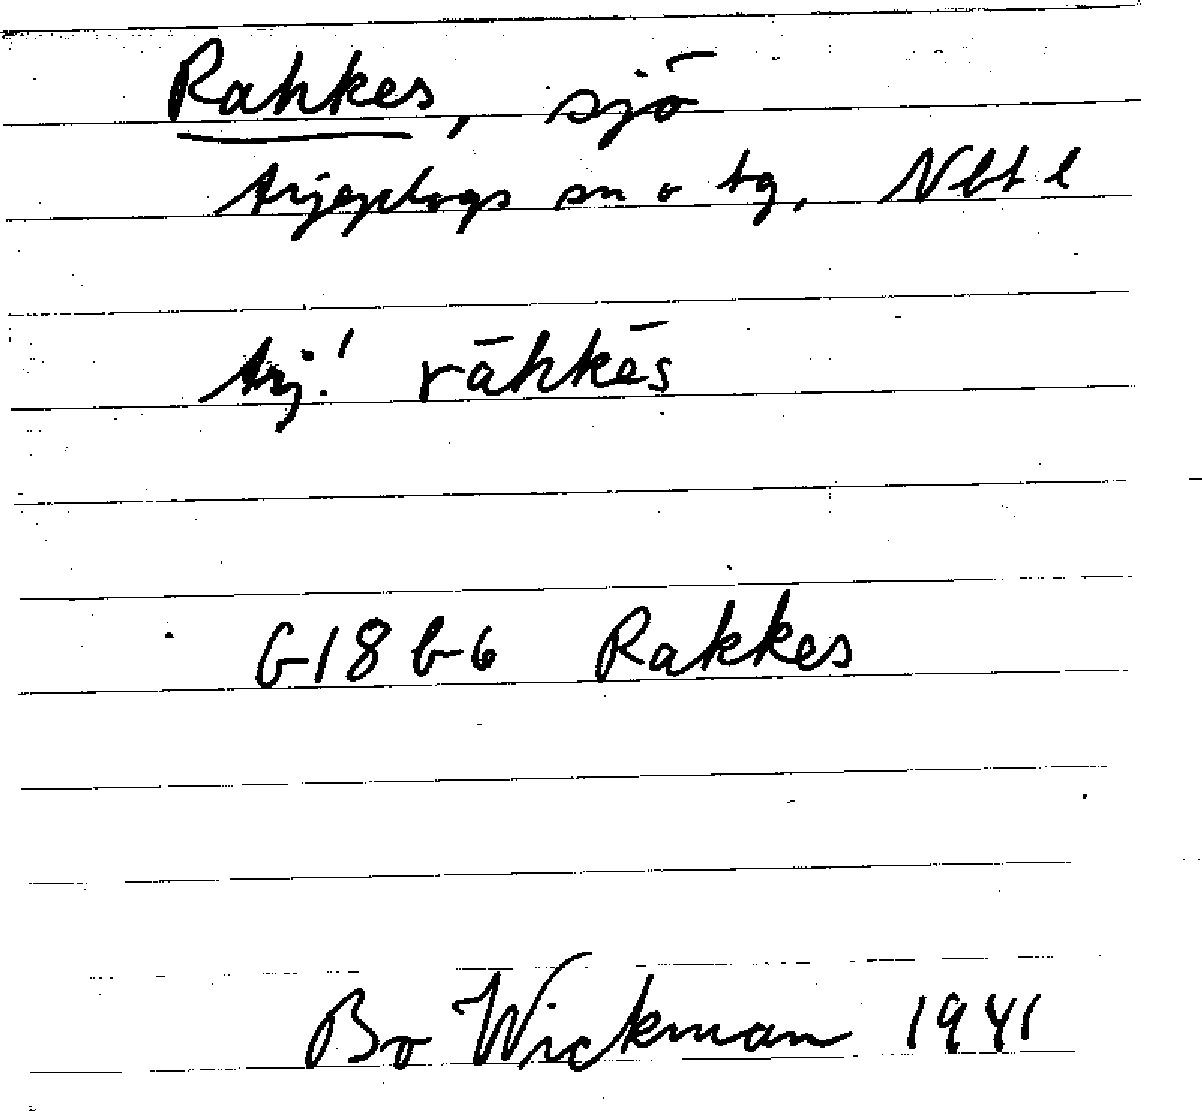 Rahkes, sjö
Arjeplogs sn o tg, Nbt l
Arj! rāhkēs
G18 b-6 Rakkes
Bo Wickman 1941